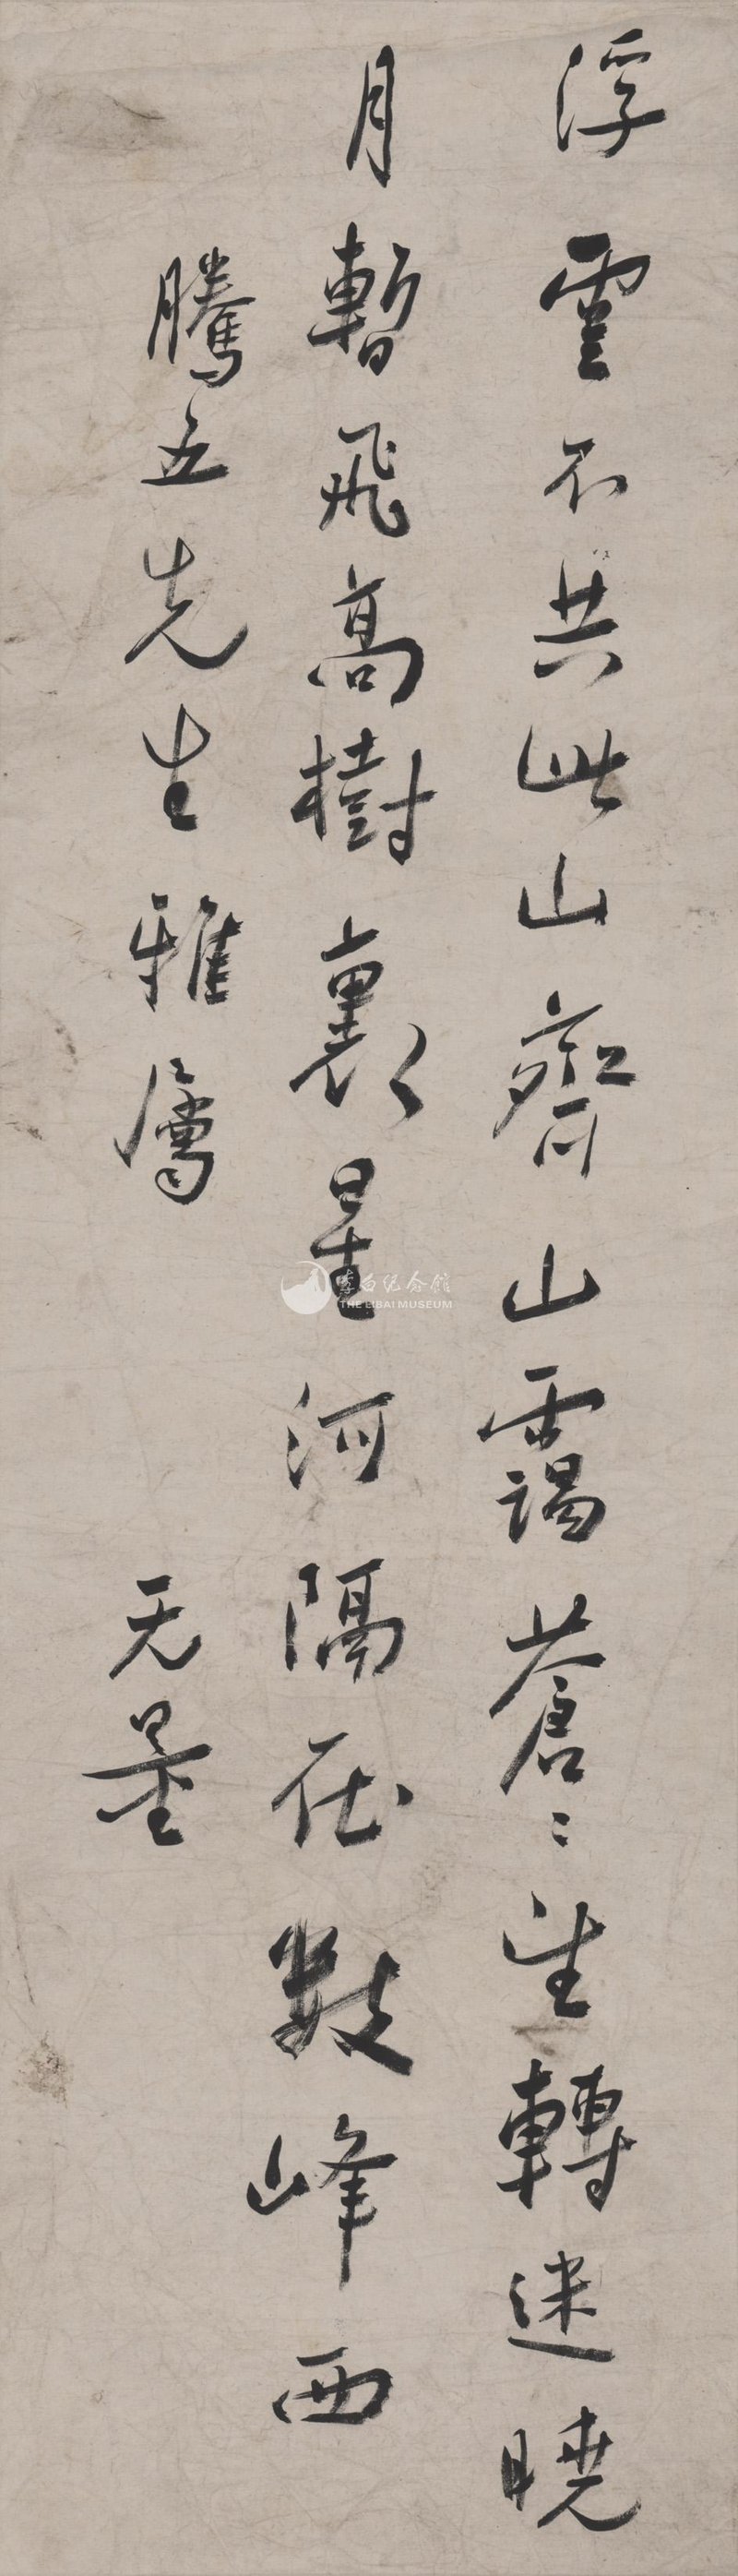 浮雲不共此山齊山靄蒼〻望轉迷曉
月暫飛高樹裏星河隔在數峰西
騰五先生雅屬
无量
李白纪念館
THE LIBAI MUSEUM